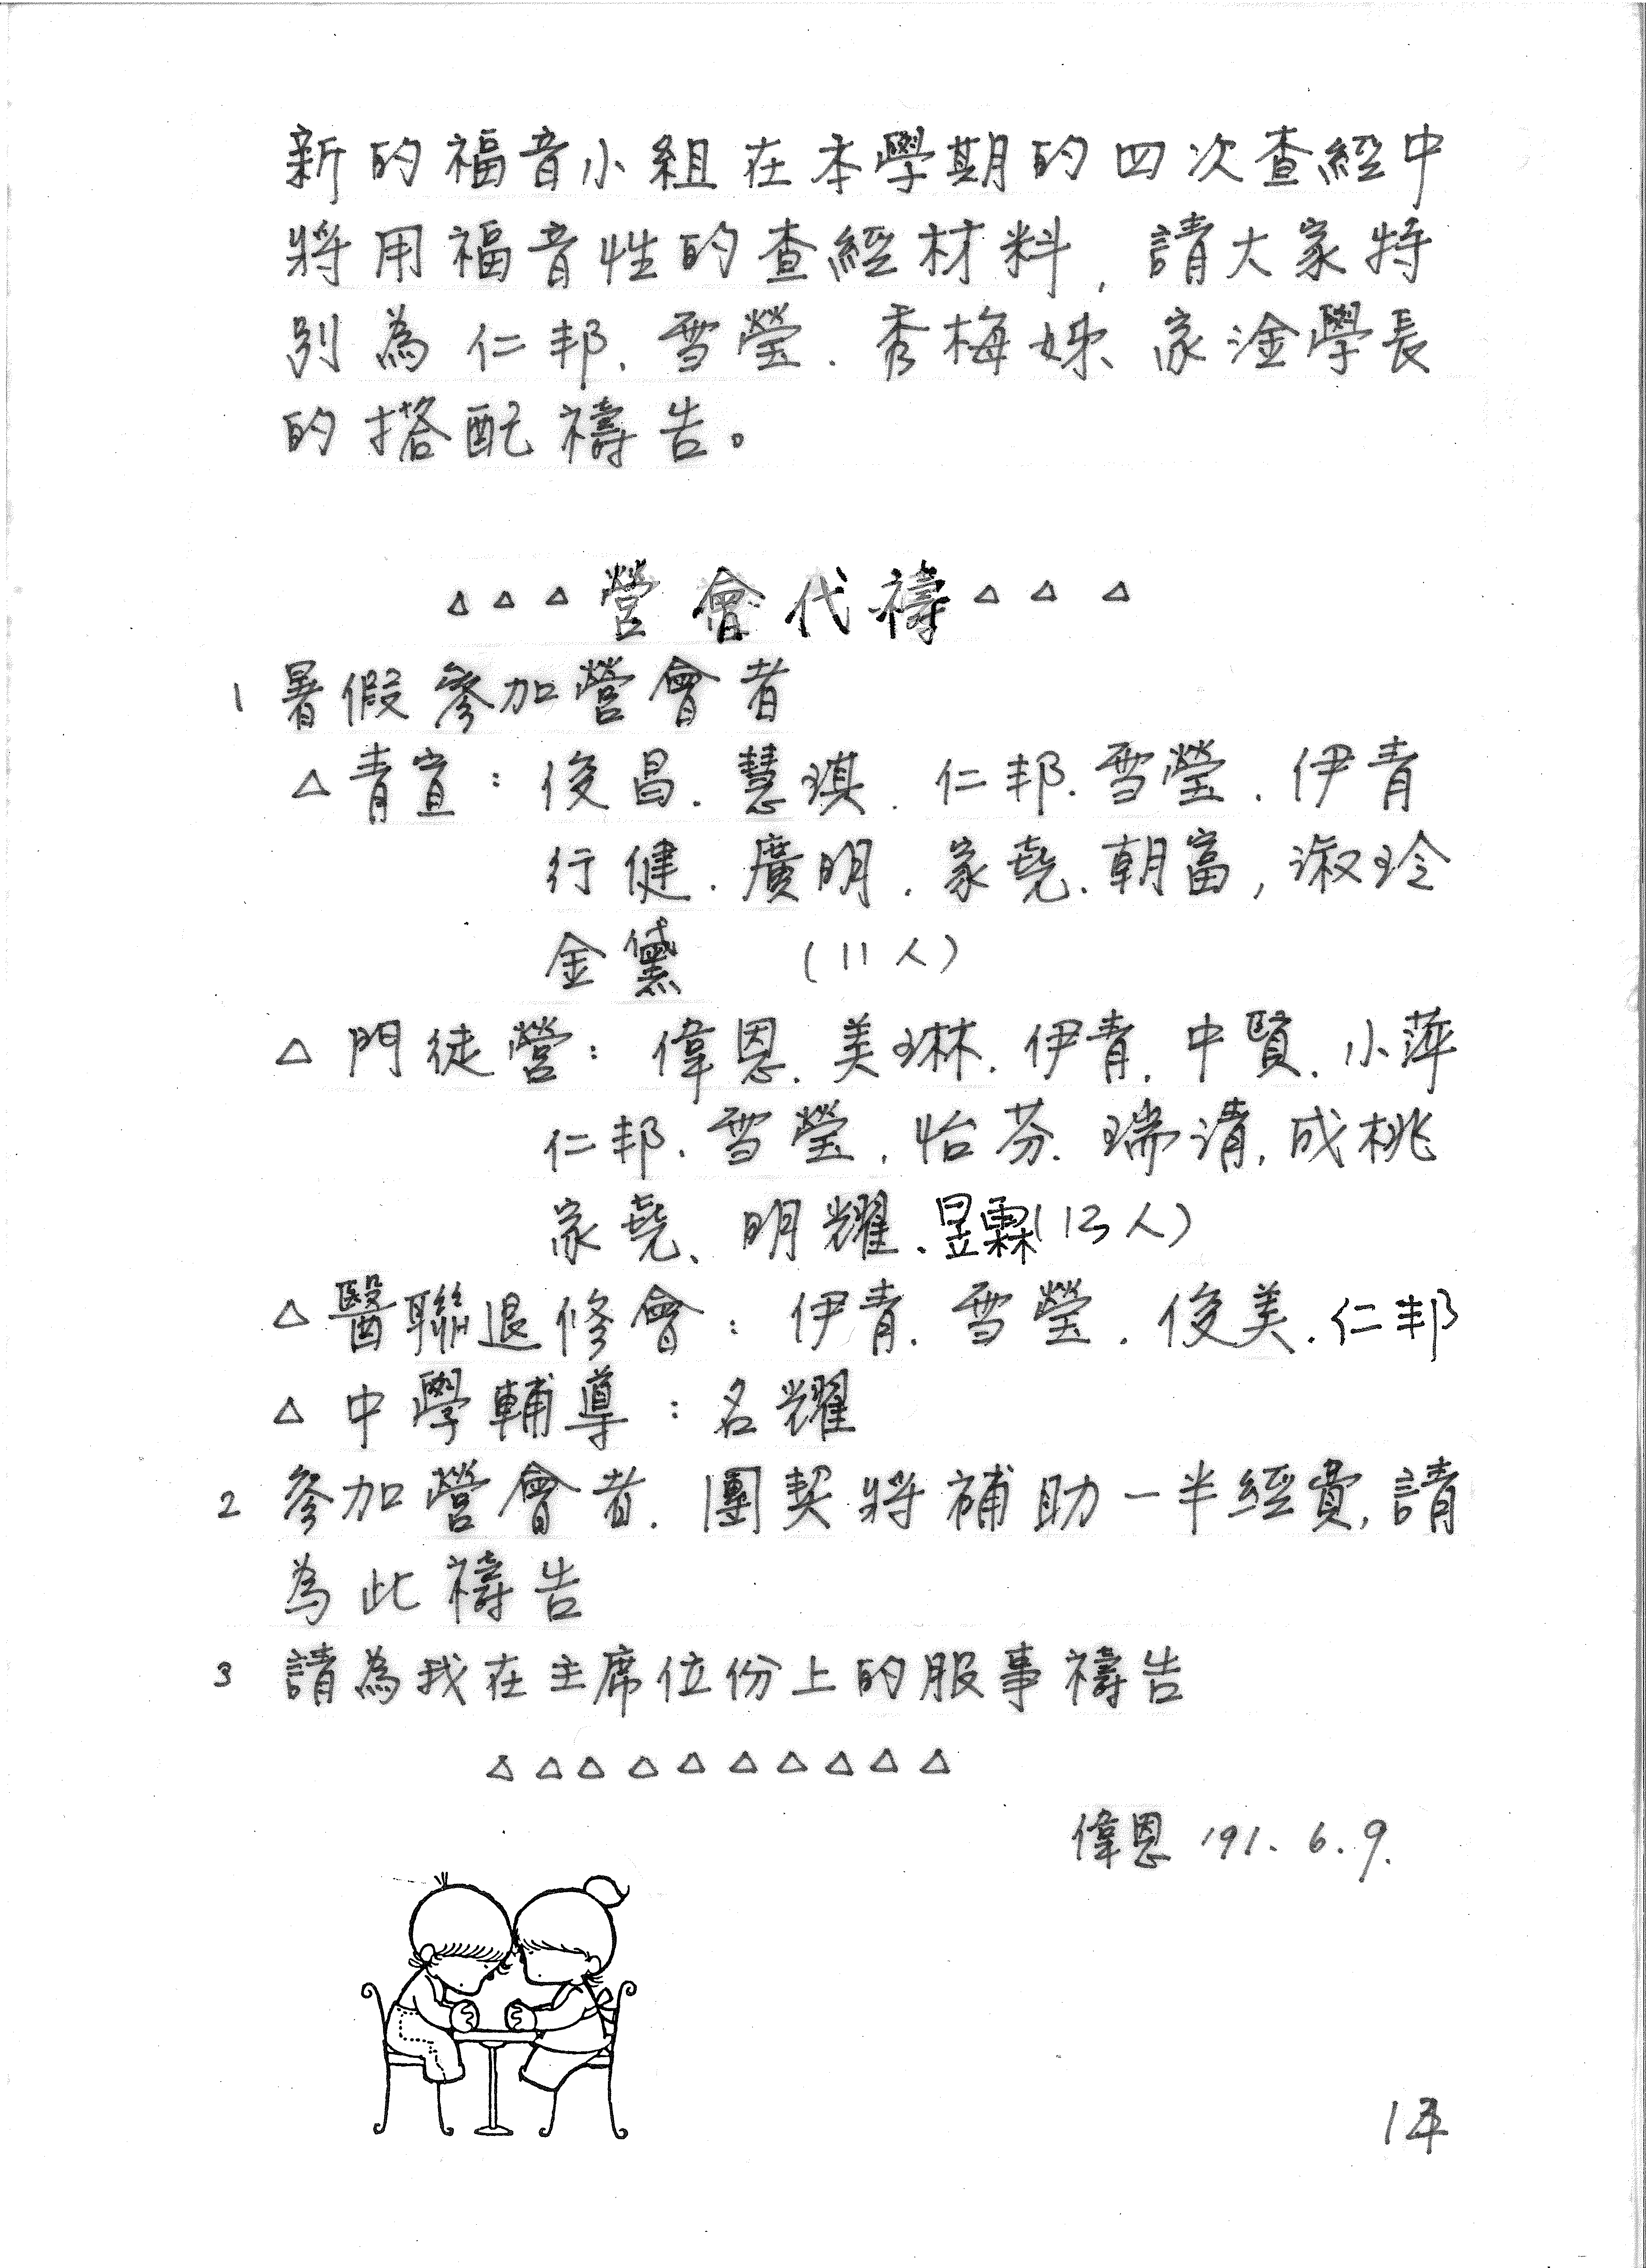 新的福音小組在本學期的四次查經中
將用福音性的查經材料，請大家特
別為仁邦、雪瑩、秀梅姊、家淦學長
的搭配禱告。
△△△營會代禱△△△
1 暑假參加營會者
△青宣：俊昌、慧琪、仁邦、雪瑩、伊青
行健、廣明、家堯、朝富，淑玲
金黛 (11人)
△門徒營：偉恩、美琳、伊青、中賢、小萍
仁邦、雪瑩、怡芬、瑞清，成桃
家堯、明耀、昱霖(13人)
△醫聯退修會：伊青、雪瑩、俊美、仁邦
△中學輔導：名耀
2 參加營會者、團契將補助一半經費，請
為此禱告
3 請為我在主席位份上的服事禱告
△△△△△△△△△△
偉恩 '91. 6. 9.